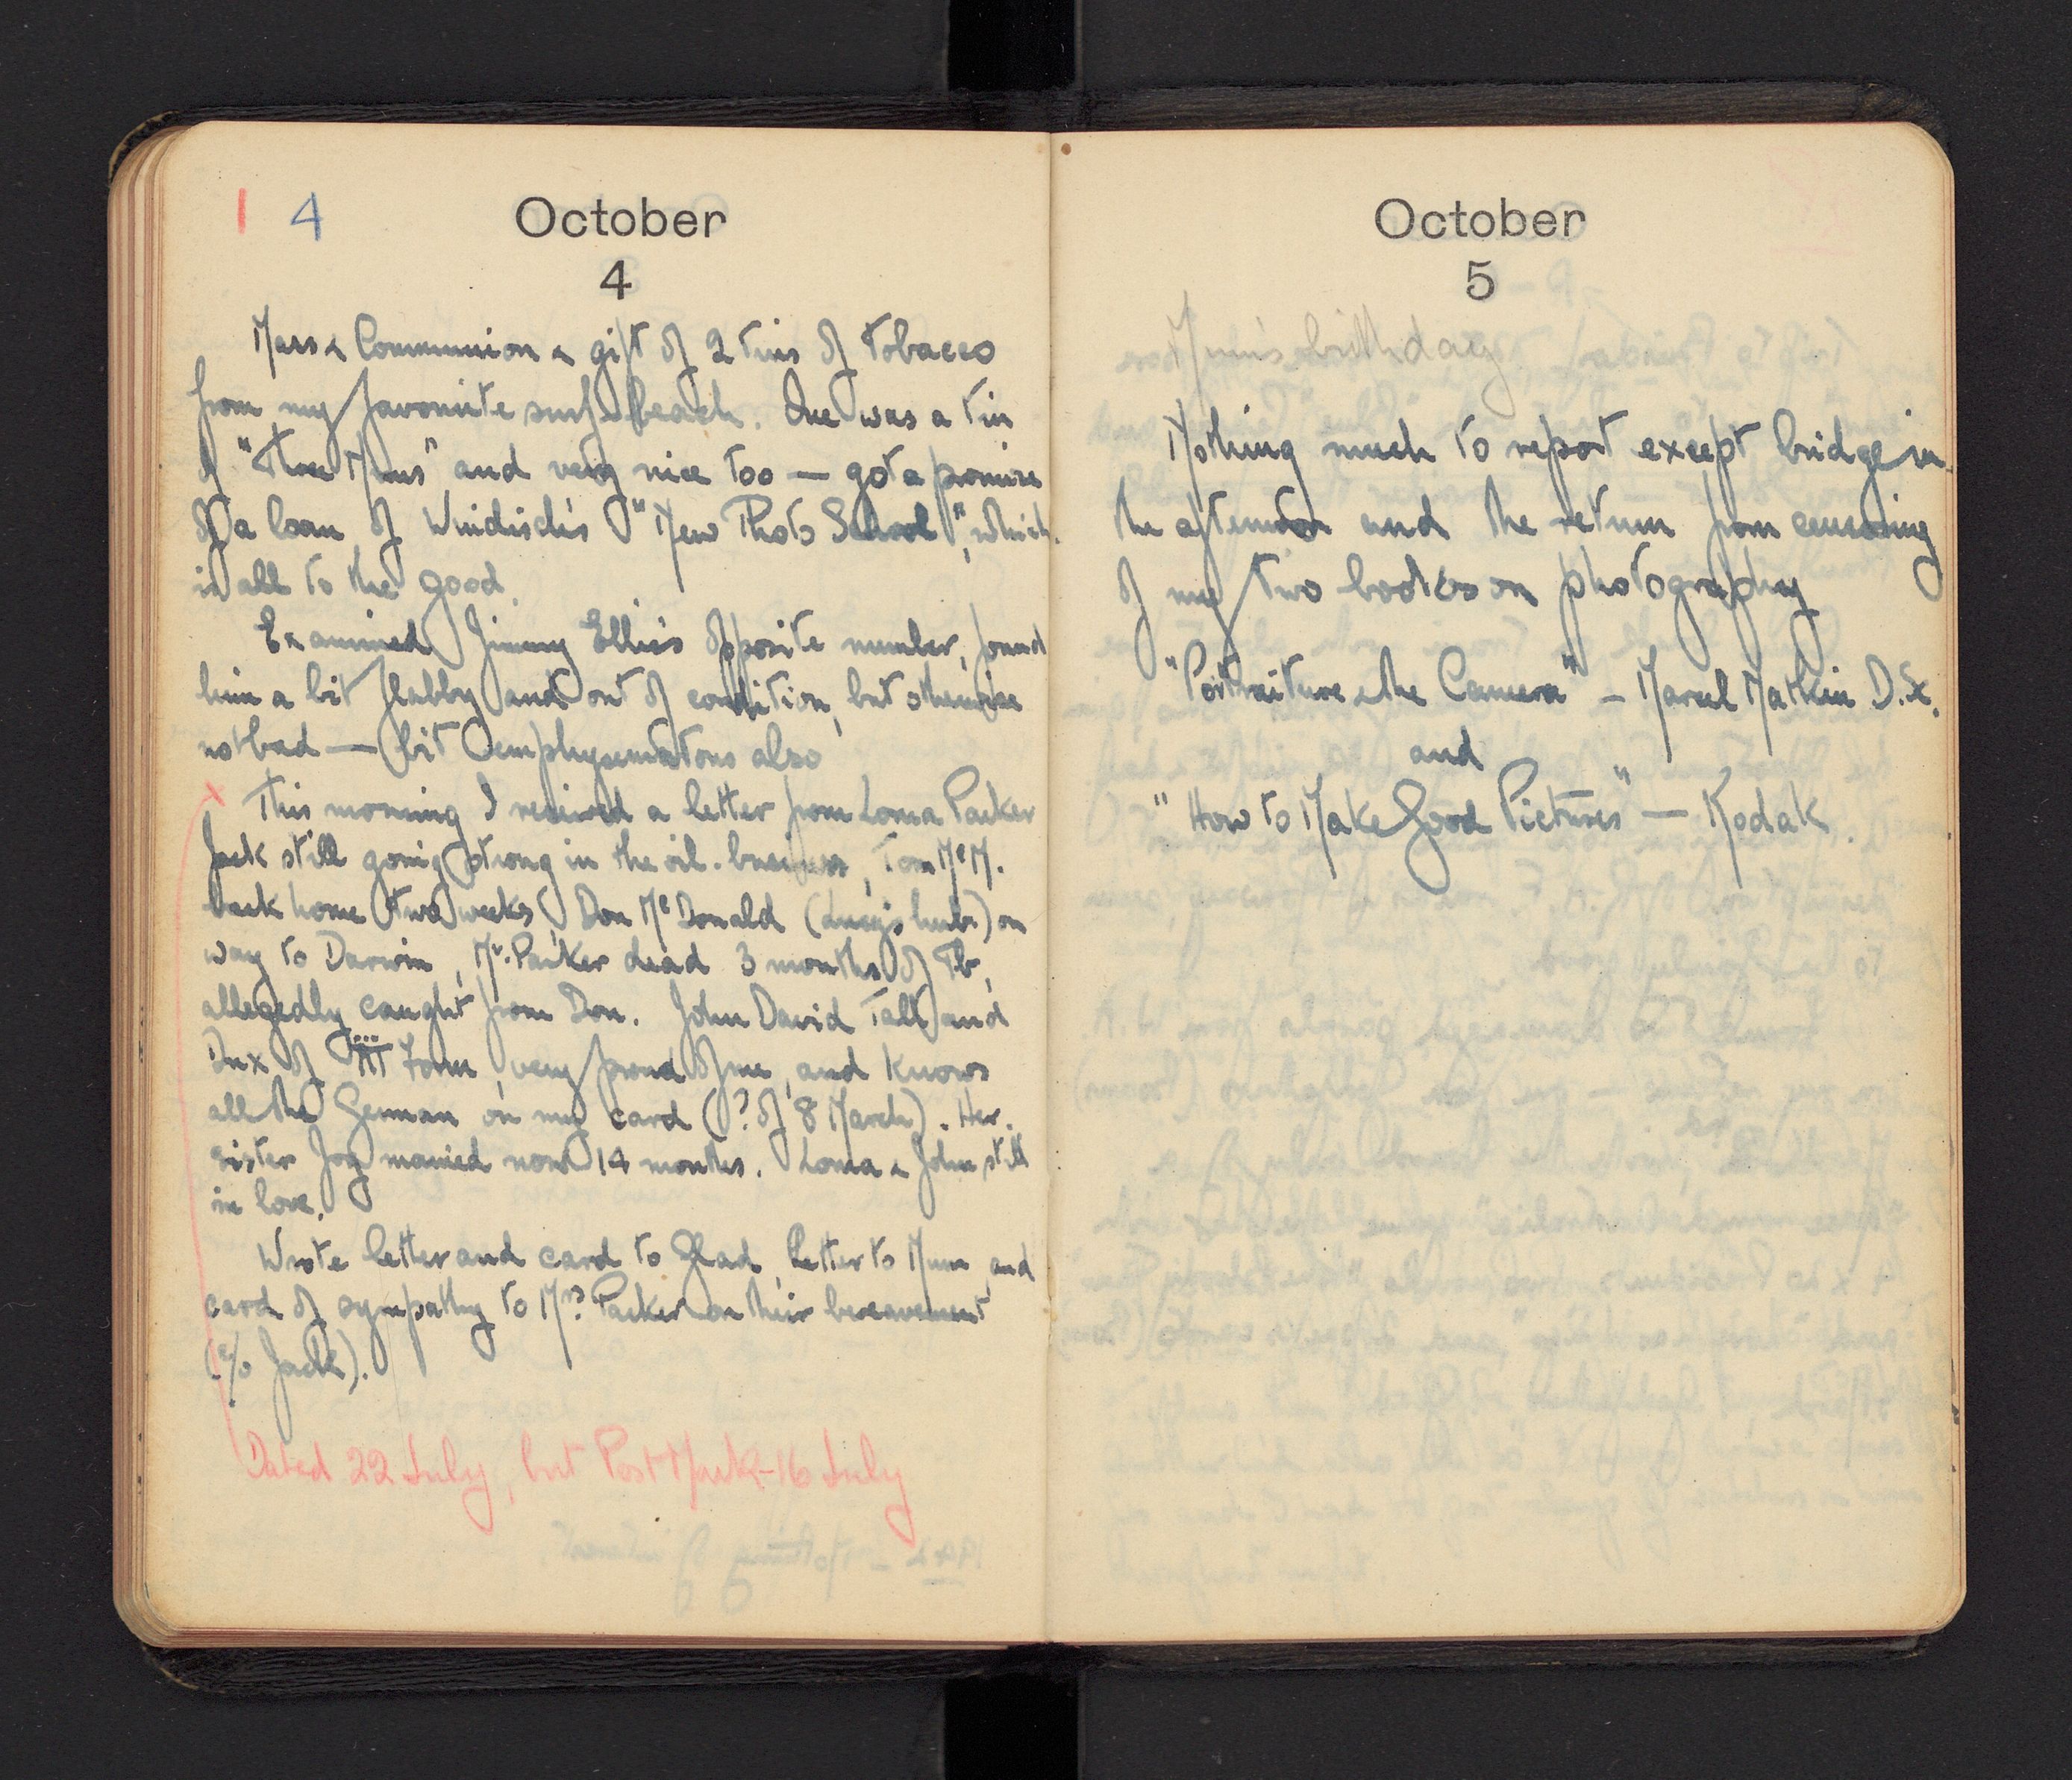 1 4
October
4
Mass & Communion & gift of 2 tins of tobacco
from my favourite surf beach. One was a tin
of "Three Nuns" and very nice too — got a promise
of a loan of Windisch's "New Photo School", which
is all to the good.
Examined Jimmy Ellis's opposite number, found
him a bit flabby and out of condition, but otherwise
not bad — bit emphysematous also
x This morning I received a letter from Lorna Parker
Jack still going strong in the oil-business, Tom McM.
back home two weeks, Don McDonald (Lucy's hub.) on
way to Darwin, Mr. Parker dead 3 months of Tb,
allegedly caught from Don. John David Tall and
Dux of III Form, very proud of me, and knows
all the German on my card (? of 8 March). Her
sister Joy married now 14 months. Lorna & John still
in love.
Wrote letter and card to Glad, letter to Mum and
card of sympathy to Mrs Parker on their bereavement
(c/o Jack).
Dated 22 July, but Post Mark - 16 July
October
5
Mum's birthday
Nothing much to report except bridge in
the afternoon and the return from censoring
of my two books on photography
"Portraiture & the Camera" — Marcel Natkin D.Sc.
and
"How to Make Good Pictures" — Kodak.